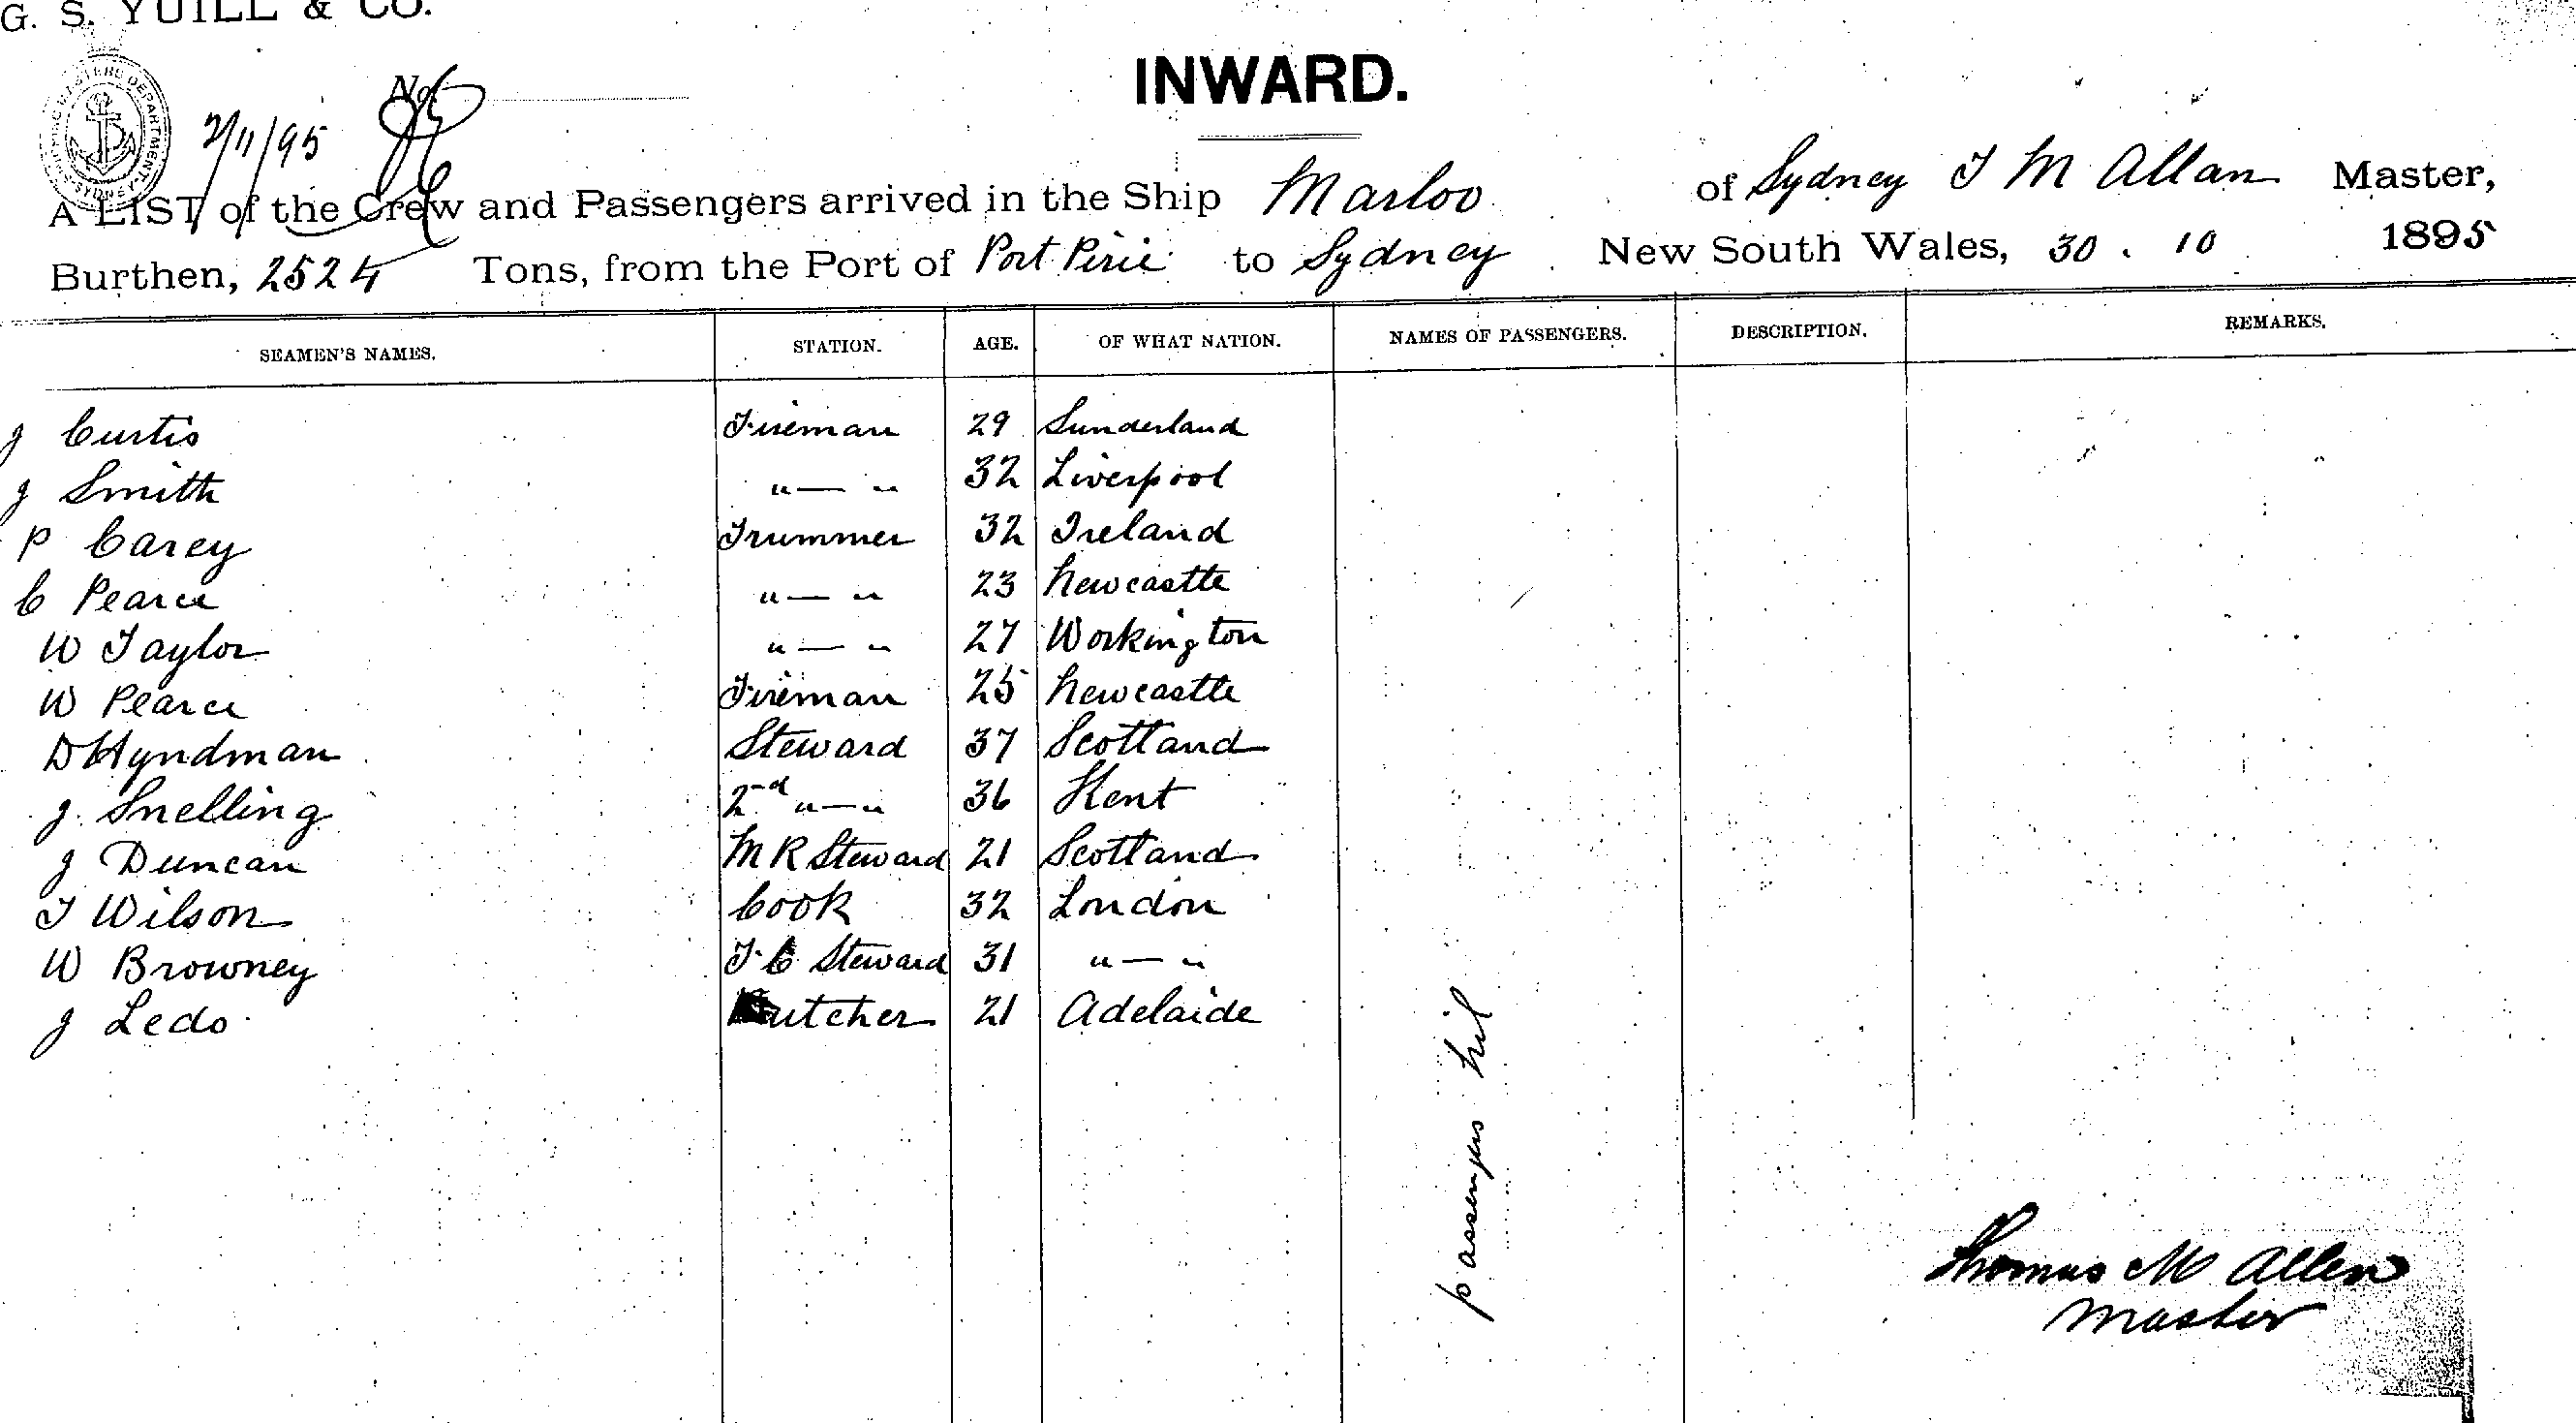 G. S. YUILL & CO.
INWARD.
No.
2/11/95
SHIPPING MASTERS DEPARTMENT SYDNEY
A LIST of the Crew and Passengers arrived in the Ship Marloo of Sydney T M Allan Master,
Burthen, 2524 Tons, from the Port of Port Pirie to Sydney New South Wales, 30 . 10 1895
SEAMEN'S NAMES. STATION. AGE. OF WHAT NATION. NAMES OF PASSENGERS. DESCRIPTION. REMARKS.
J Curtis Fireman 29 Sunderland
J Smith " — " 32 Liverpool
P Carey Trummer 32 Ireland
C Pearce " — " 23 Newcastle
W Taylor " — " 27 Workington
W Pearce Fireman 25 Newcastle
D Hyndman Steward 37 Scotland
J. Snelling 2nd " — " 36 Kent
J Duncan M R Steward 21 Scotland
T Wilson Cook 32 London
W Browney F. C Steward 31 " — "
J Ledo Butcher 21 Adelaide
passengers Nil
Thomas M Allen
Master